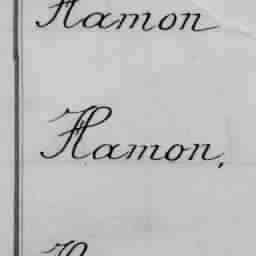 Hamon
Hamon,